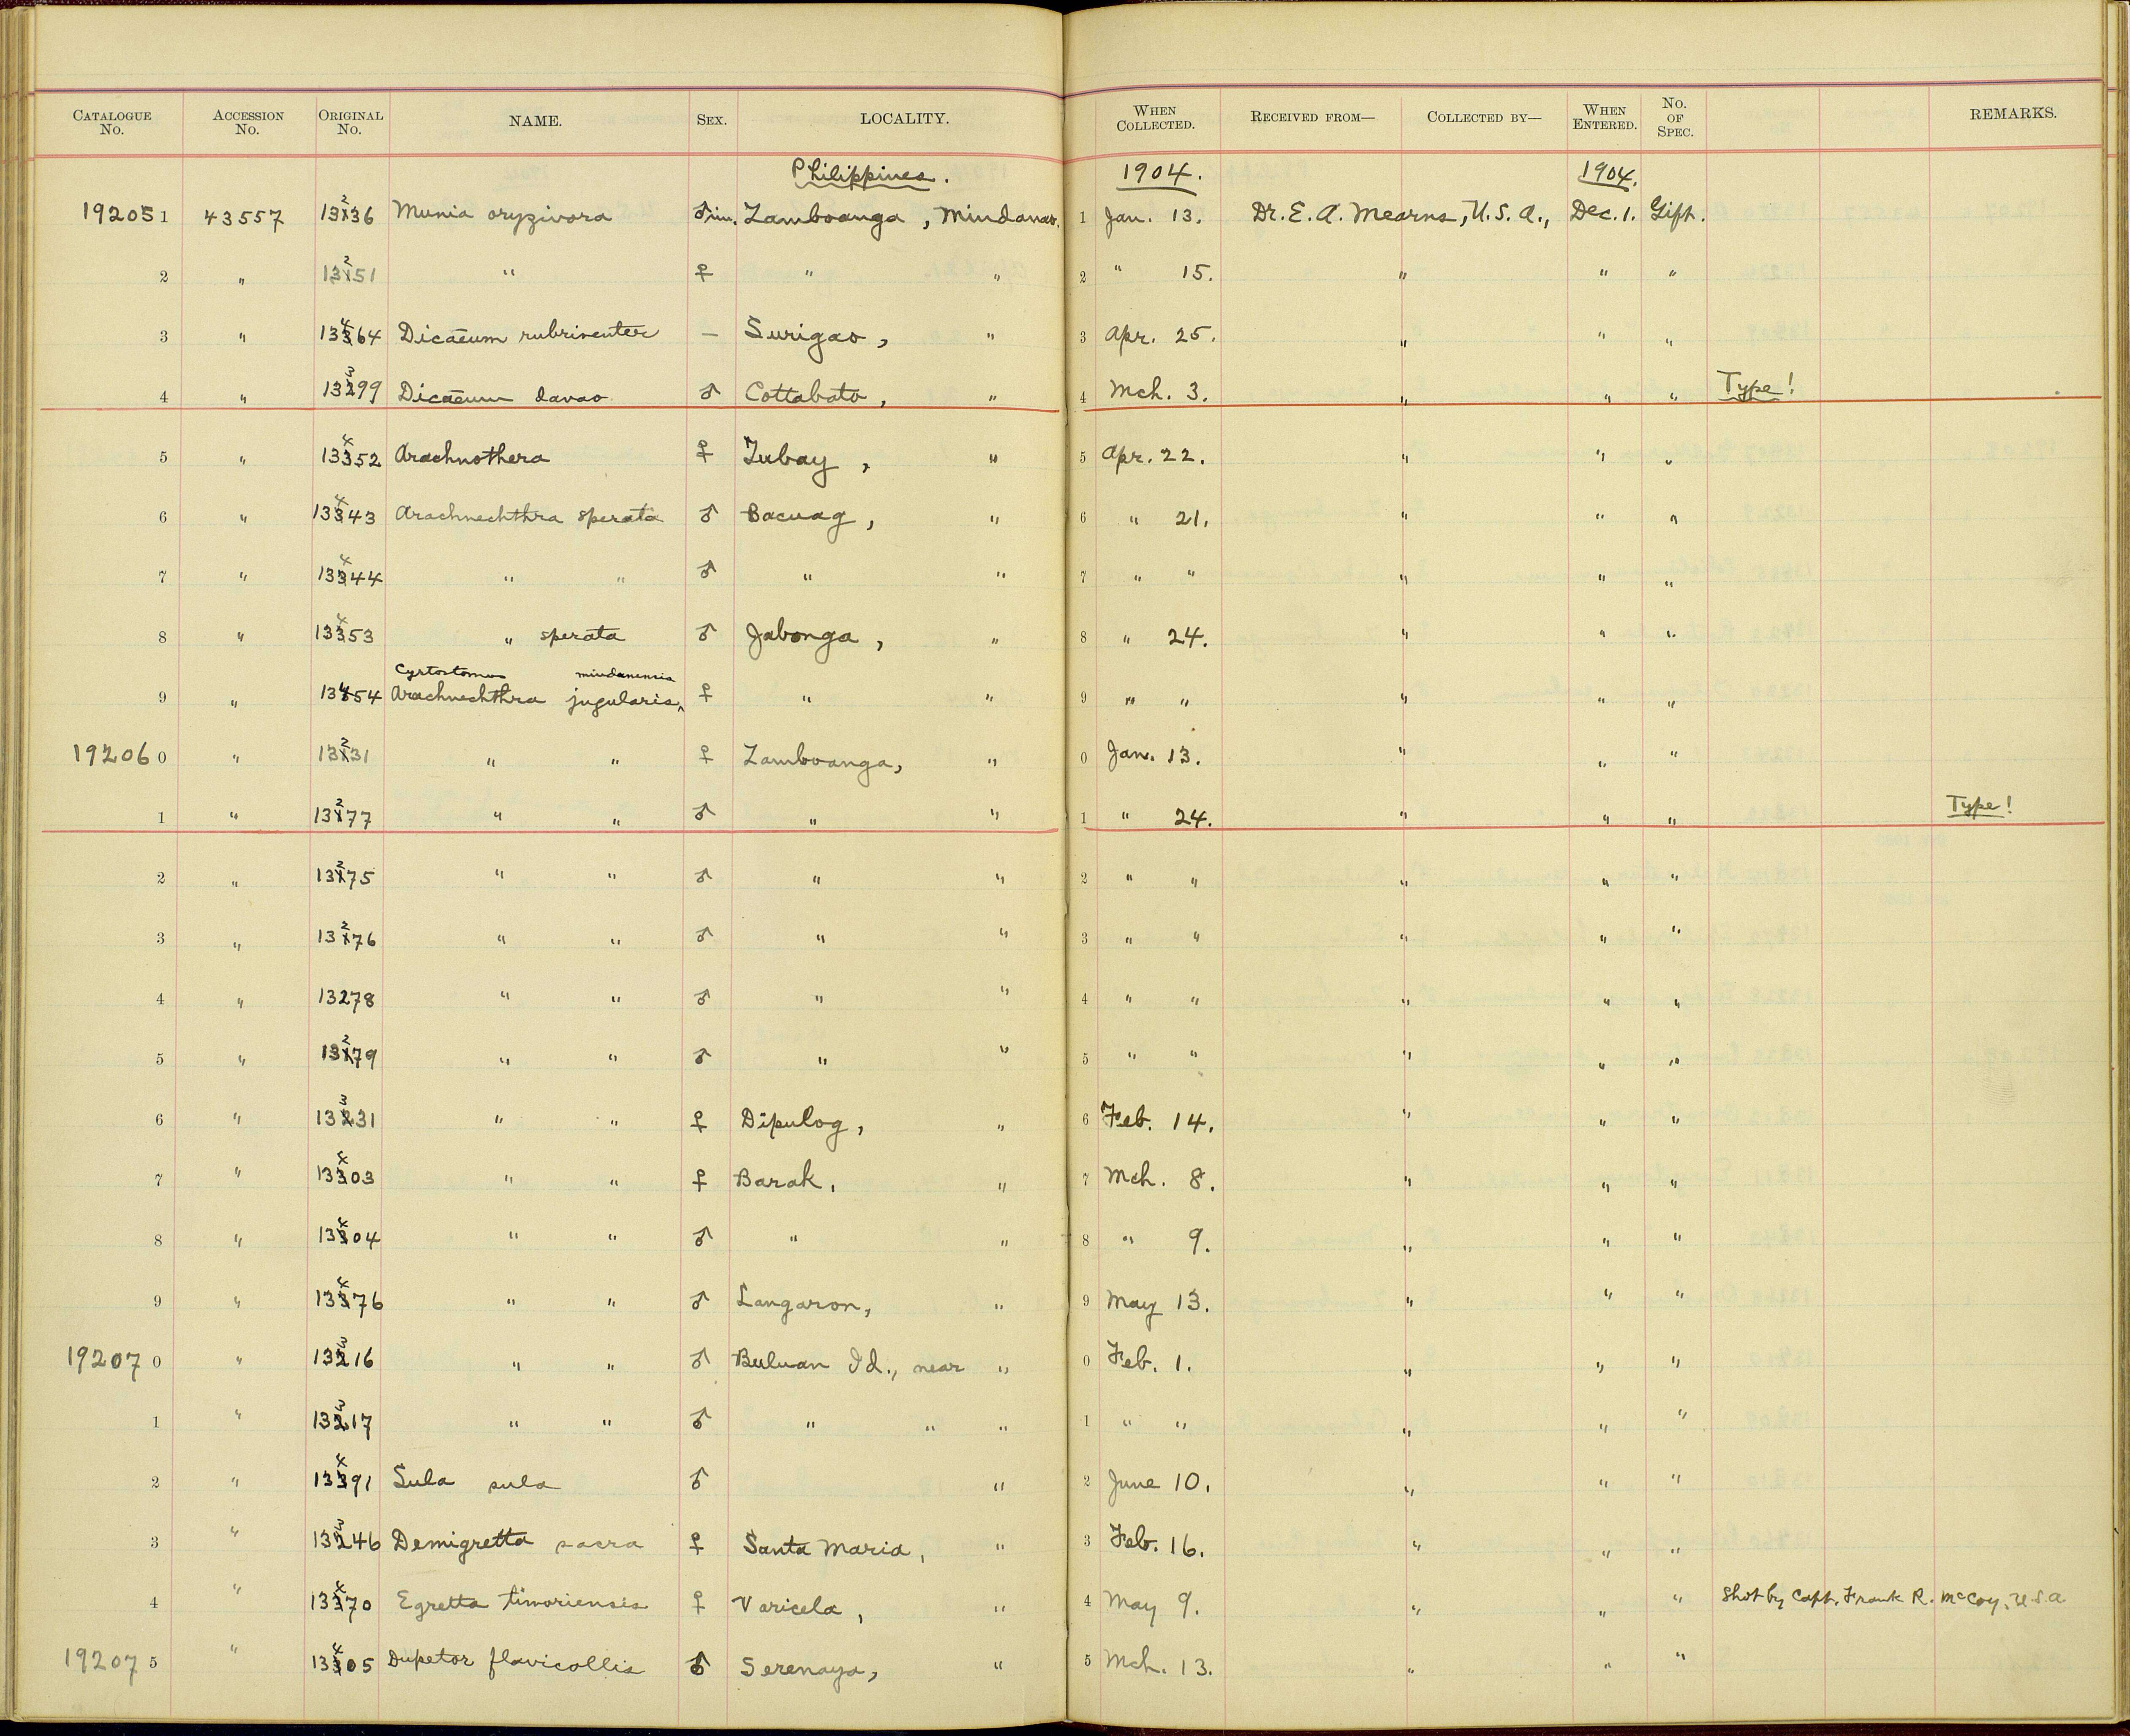 CATALOGUE No. ACCESSION No. ORIGINAL No. NAME. SEX. LOCALITY. WHEN COLLECTED. RECEIVED FROM— COLLECTED BY— WHEN ENTERED. No. OF SPEC. REMARKS.
Philippines. 1904. 1904.
192051 43557 13236 Munia oryzivora ♂im. Zamboanga, Mindanao. 1 Jan. 13. Dr. E. A. Mearns, U.S.A., Dec. 1. Gift.
2 " 13251 " ♀ " " 2 " 15. " " "
3 " 13464 Dicaeum rubriventer — Surigao, " 3 Apr. 25. " " "
4 " 13399 Dicaeum davao ♂ Cottabato, " 4 Mch. 3. " " " Type!
5 " 13452 Arachnothera ♀ Tubay, " 5 Apr. 22. " " "
6 " 13443 Arachnechthra sperata ♂ Bacuag, " 6 " 21. " " "
7 " 13444 " " ♂ " " 7 " " " " "
8 " 13453 " sperata ♂ Jabonga, " 8 " 24. " " "
Cyrtostomus mindanensis
9 " 13454 Arachnechthra jugularis ♀ " " 9 " " " " "
192060 " 13231 " " ♀ Zamboanga, " 0 Jan. 13. " " "
1 " 13277 " " ♂ " " 1 " 24. " " " Type!
2 " 13275 " " ♂ " " 2 " " " " "
3 " 13276 " " ♂ " " 3 " " " " "
4 " 13278 " " ♂ " " 4 " " " " "
5 " 13279 " " ♂ " " 5 " " " " "
6 " 13331 " " ♀ Dipulog, " 6 Feb. 14. " " "
7 " 13403 " " ♀ Barak, " 7 Mch. 8. " " "
8 " 13404 " " ♂ " " 8 " 9. " " "
9 " 13476 " " ♂ Langaron, " 9 May 13. " " "
192070 " 13316 " " ♂ Buluan Id., near " 0 Feb. 1. " " "
1 " 13317 " " ♂ " " " 1 " " " " "
2 " 13491 Sula sula ♂ " 2 June 10. " " "
3 " 13346 Demigretta sacra ♀ Santa Maria, " 3 Feb. 16. " " "
4 " 13470 Egretta timoriensis ♀ Varicela, " 4 May 9. " " " Shot by Capt. Frank R. McCoy, U.S.A.
192075 " 13405 Dupetor flavicollis ♂ Serenaya, " 5 Mch. 13. " " "